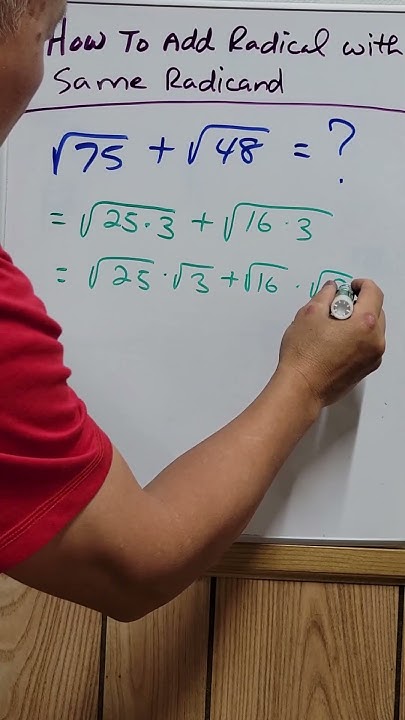 How To Add Radical with
Same Radicand
√75 + √48 = ?
= √25·3 + √16·3
= √25 · √3 + √16 · √